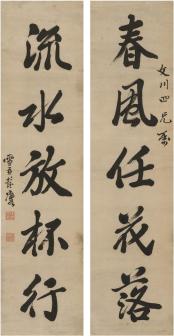 春風任花落
文川四兄
流水放杯行